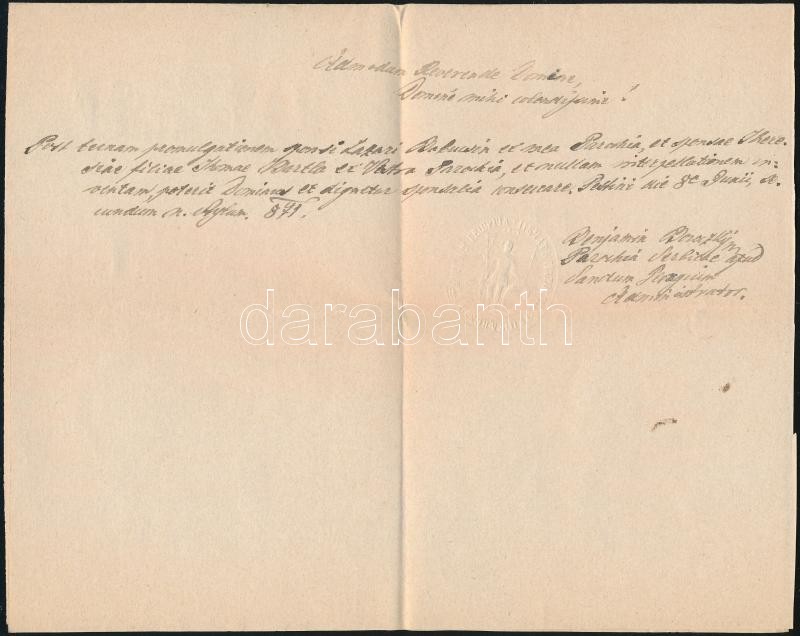 Admodum Reverende Domine,
Domine mihi colendissime!
Post ternam promulgationem sponsi Lazari et mea Parochia, et sponsae There-
siae filiae Thomae Bartle ex Vestra Parochia, et nullam interpellationem in-
ventam, poterit Dominus et dignetur sponsalia consecrare. Pestini die 8e Junii, se-
cundum n. Stylum. 891.
Benjamin
Parochiae Serbicae apud
Sanctum
Administrator.
darabanth